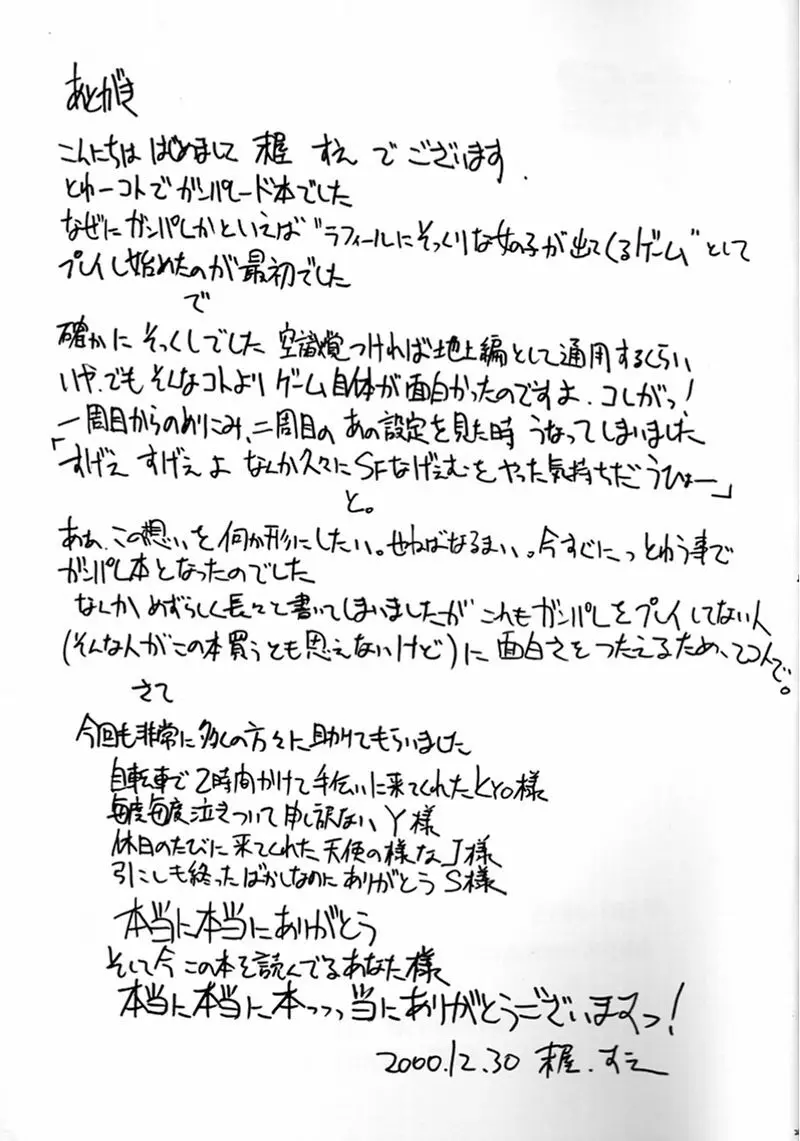 あとがき
こんにちは はじめまして 握 すえ でございます.
とゆーコトでガンパレード本でした
なぜにガンパレかといえば“ラフィールにそっくりな女の子が出てくるゲーム”として
プレイし始めたのが最初でした
で
確かにそっくしでした 空識覚つければ地上編として通用するくらい
いや.でもそんなコトよりゲーム自体が面白かったのですよ.コレがっ!
一周目からのめりこみ、二周目のあの設定を見た時 うなってしまいました
「すげえ すげえよ なんか久々にSFなげえむをやった気持ちだうひょー」
と。
ああ、この想いを何か形にしたい。せねばなるまい。今すぐにっとゆう事で
ガンパレ本となったのでした
なんかめずらしく長々と書いてしまいましたが これもガンパレをプレイしてない人
(そんな人がこの本買うとも思えないけど)に 面白さをつたえるため、てコトで。
さて
今回も非常に多くの方々に助けてもらいました
自転車で2時間かけて手伝いに来てくれたkyo様
毎度毎度泣きついて申し訳ない Y様
休日のたびに来てくれた天使の様なJ様
引こしも終ったばかしなのにありがとう S様
本当に本当にありがとう
そして今この本を読んでるあなた様
本当に本当に本っっっ当にありがとうございますっ!
2000.12.30 すえ